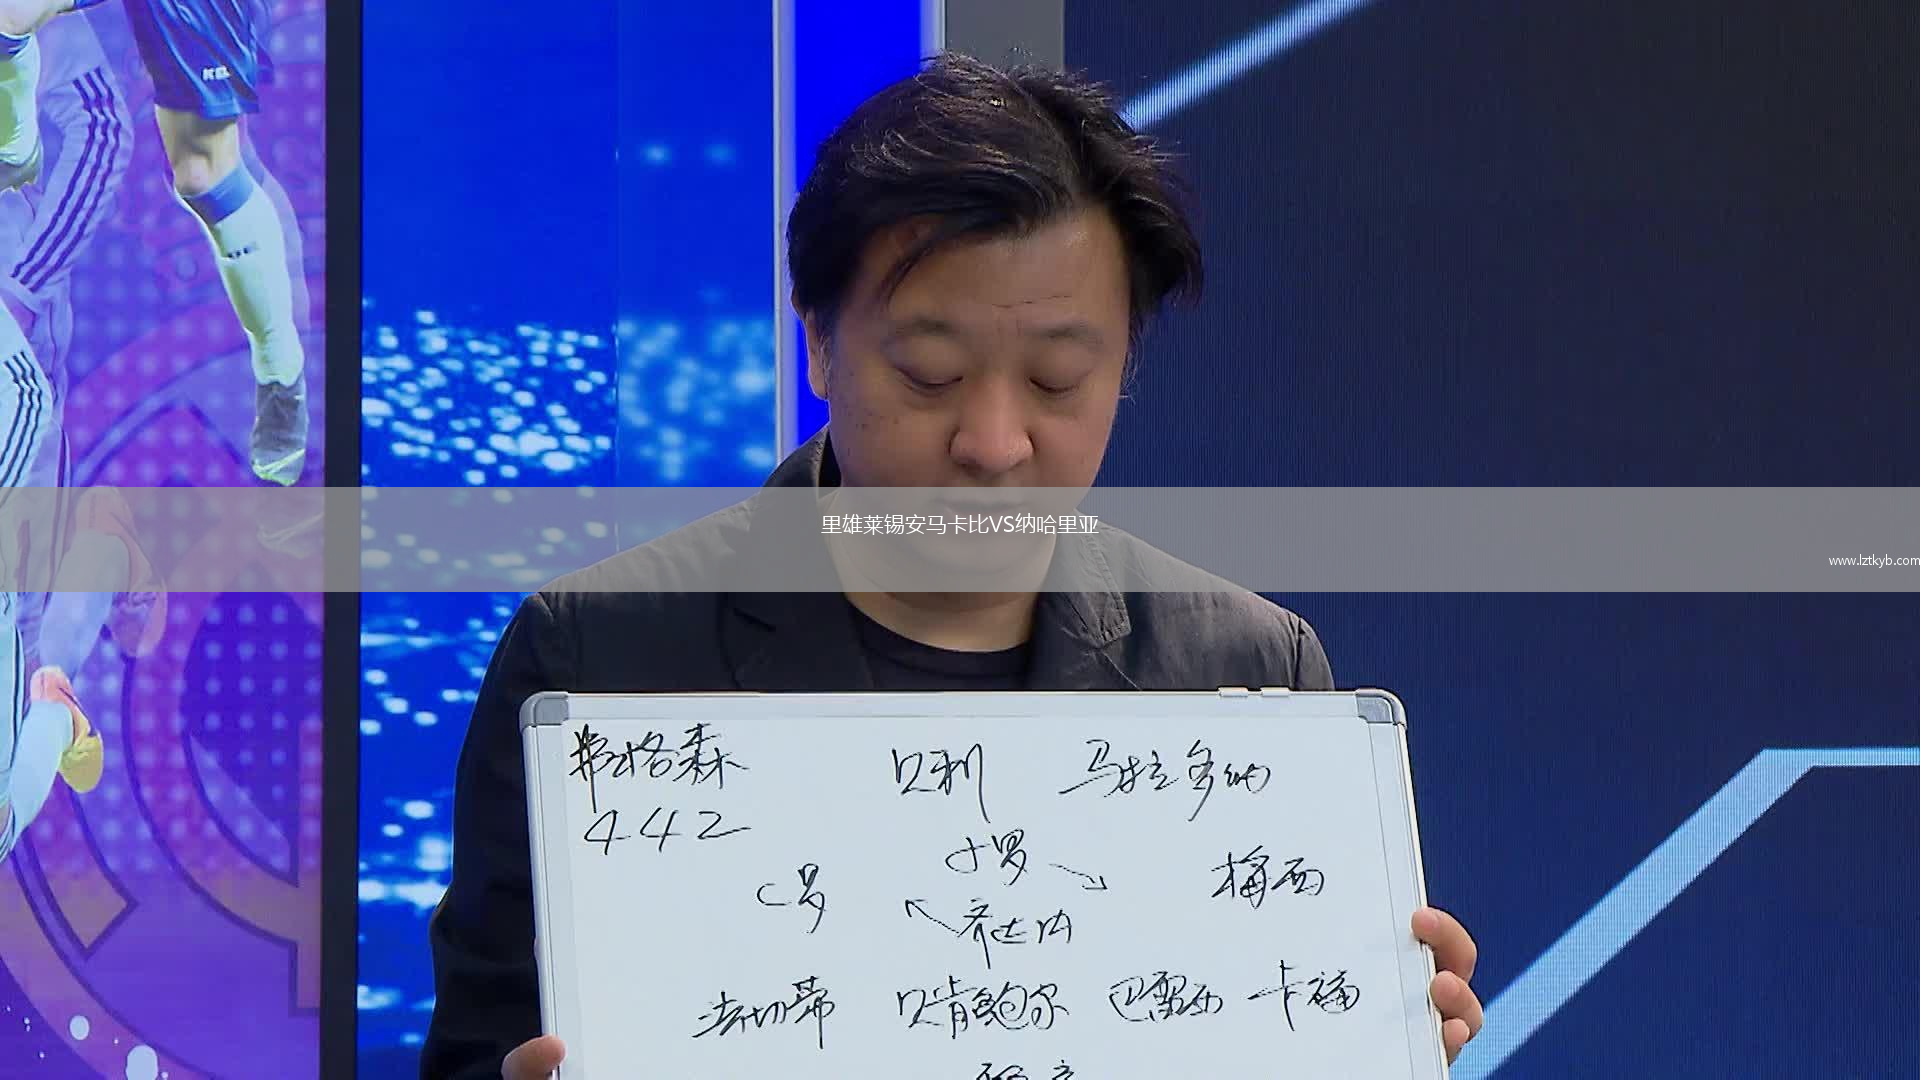 里雄莱锡安马卡比VS纳哈里亚
www.lztkyb.com
弗格森 贝利 马拉多纳
442
小罗
C罗 梅西
齐达内
法切蒂 贝肯鲍尔 巴雷西 卡福